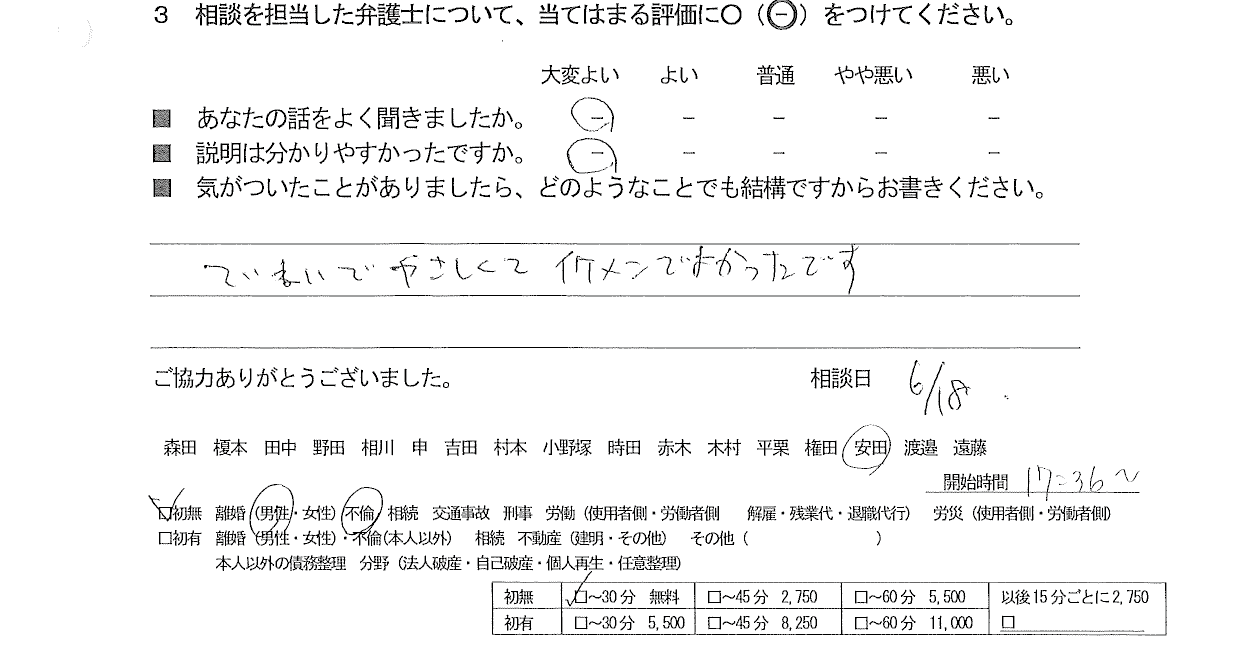 3 相談を担当した弁護士について、当てはまる評価に○（㊀）をつけてください。
大変よい よい 普通 やや悪い 悪い
■ あなたの話をよく聞きましたか。 － － － － －
■ 説明は分かりやすかったですか。 － － － － －
■ 気がついたことがありましたら、どのようなことでも結構ですからお書きください。
ていねいでやさしくて イケメンでよかったです
ご協力ありがとうございました。 相談日 6/18
森田 榎本 田中 野田 相川 申 吉田 村本 小野塚 時田 赤木 木村 平栗 権田 安田 渡邉 遠藤
開始時間 17:36〜
☑初無 離婚（男性・女性）不倫 相続 交通事故 刑事 労働（使用者側・労働者側 解雇・残業代・退職代行） 労災（使用者側・労働者側）
□初有 離婚（男性・女性）・不倫（本人以外） 相続 不動産（建明・その他） その他（ ）
本人以外の債務整理 分野（法人破産・自己破産・個人再生・任意整理）
初無 ☑～30分 無料 □～45分 2,750 □～60分 5,500 以後15分ごとに2,750
初有 □～30分 5,500 □～45分 8,250 □～60分 11,000 □